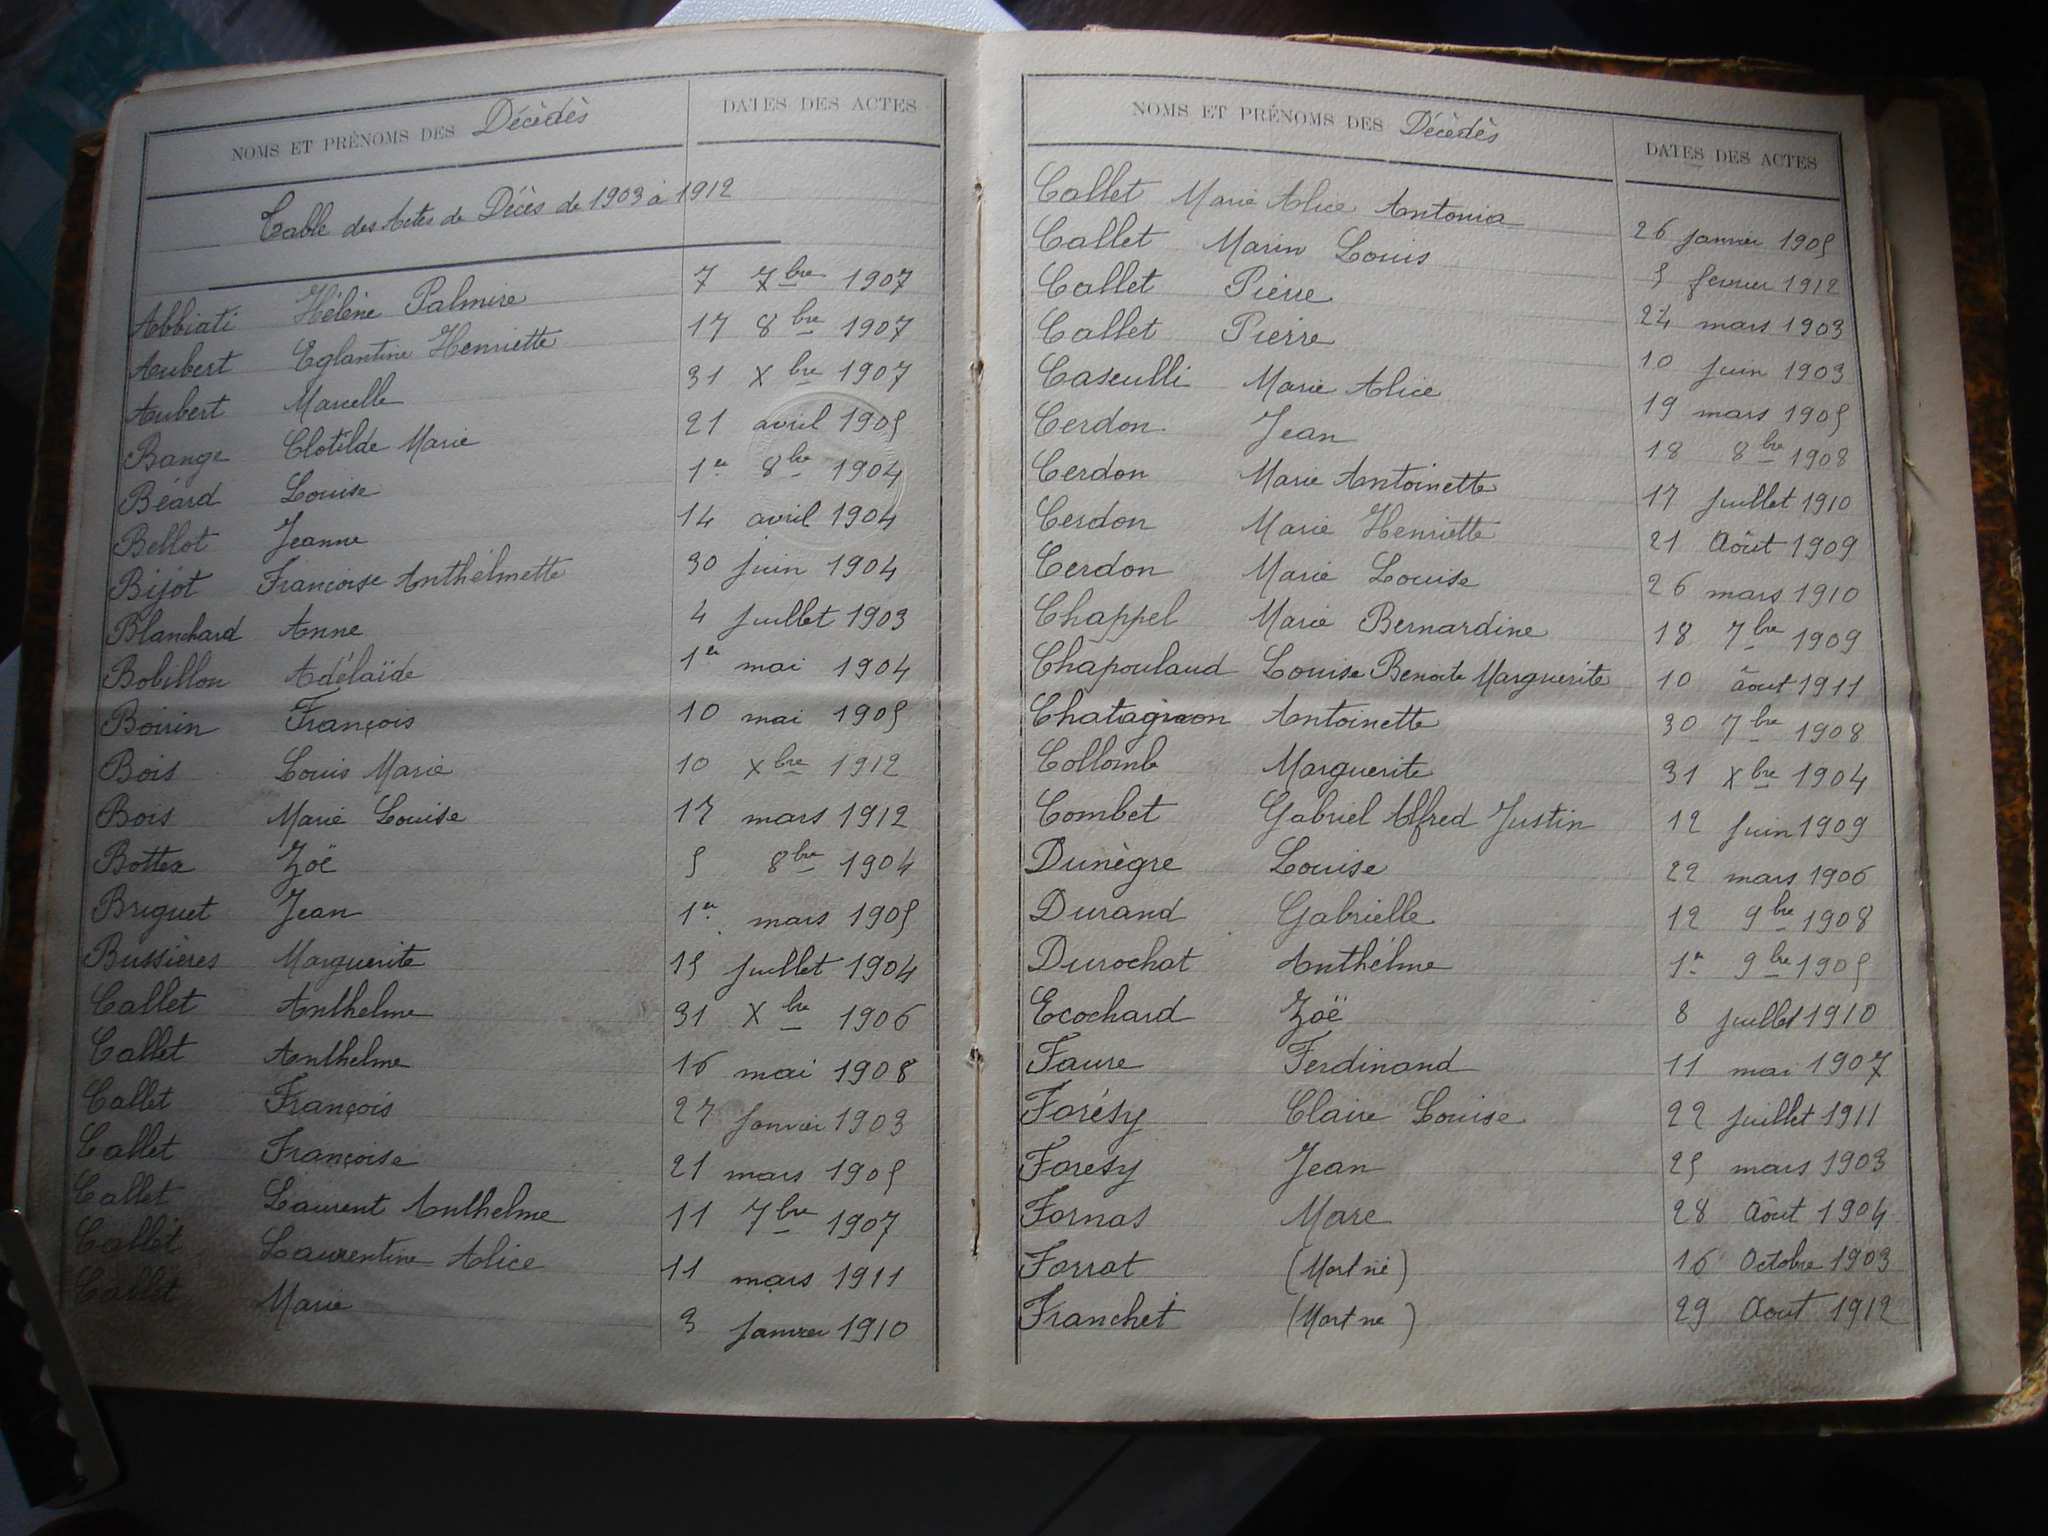 NOMS ET PRÉNOMS DES Décèdès DATES DES ACTES
Table des Actes de Décès de 1903 à 1912
Abbiati Hélène Palmire 7 7bre 1907
Aubert Eglantine Henriette 17 8bre 1907
Aubert Marcelle 31 Xbre 1907
Bange Clotilde Marie 21 avril 1905
Béard Louise 1er 8bre 1904
Bellot Jeanne 14 avril 1904
Bijot Françoise Anthelmette 30 juin 1904
Blanchard Anne 4 juillet 1903
Bobillon Adélaïde 1er mai 1904
Boirin François 10 mai 1905
Bois Louis Marie 10 Xbre 1912
Bois Marie Louise 17 mars 1912
Bottex Zoë 5 8bre 1904
Briguet Jean 1er mars 1905
Bussières Marguerite 15 juillet 1904
Callet Anthelme 31 Xbre 1906
Callet Anthelme 16 mai 1908
Callet François 27 janvier 1903
Callet Françoise 21 mars 1905
Callet Laurent Anthelme 11 7bre 1907
Callet Laurentine Alice 11 mars 1911
Callet Marie 3 janvier 1910
NOMS ET PRÉNOMS DES Décèdès DATES DES ACTES
Callet Marie Alice Antonia 26 janvier 1905
Callet Marin Louis 5 fevrier 1912
Callet Pierre 24 mars 1903
Callet Pierre 10 juin 1903
Casculli Marie Alice 19 mars 1905
Cerdon Jean 18 8bre 1908
Cerdon Marie Antoinette 17 juillet 1910
Cerdon Marie Henriette 21 Août 1909
Cerdon Marie Louise 26 mars 1910
Chappel Marie Bernardine 18 7bre 1909
Chapoulaud Louise Benoite Marguerite 10 âout 1911
Chatagnon Antoinette 30 7bre 1908
Collomb Marguerite 31 Xbre 1904
Combet Gabriel Alfred Justin 12 juin 1909
Dunègre Louise 22 mars 1906
Durand Gabrielle 12 9bre 1908
Durochat Anthélme 1er 9bre 1905
Ecochard Zoë 8 juillet 1910
Faure Ferdinand 11 mai 1907
Forésy Claire Louise 22 juillet 1911
Foresy Jean 25 mars 1903
Fornas Marc 28 Août 1904
Forrat (Mort né) 16 Octobre 1903
Franchet (Mort né) 29 Aout 1912